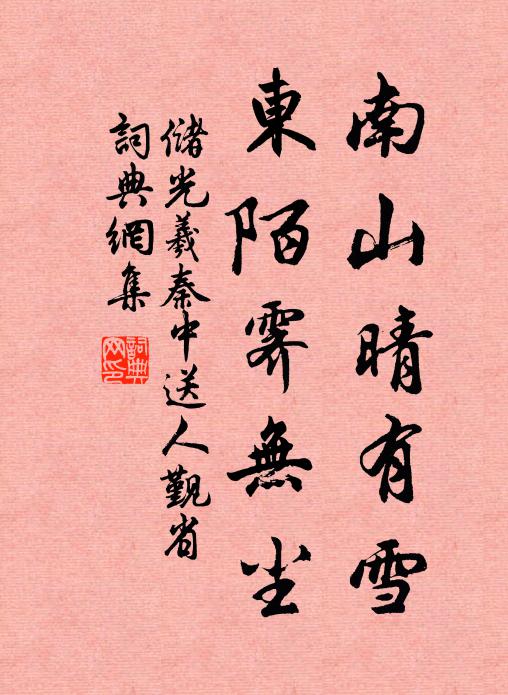 南山晴有雪
東陌霽無尘
儲光羲秦中送人觐省
詞典網集
詞典網印